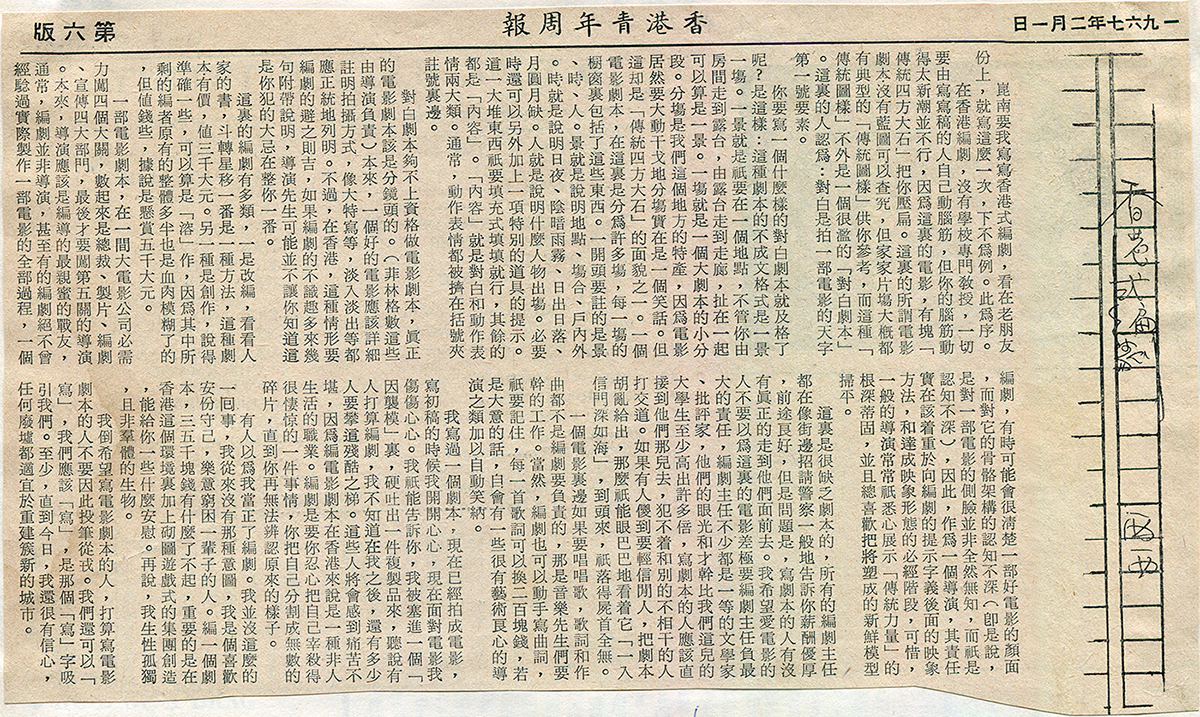 一九六七年二月一日
香港青年周報
第六版
香港式編劇
西西
崑南要我寫寫香港式編劇，看在老朋友
份上，就寫這麽一次，下不爲例。此爲序。
在香港編劇，沒有學校專門敎授，一切
要由寫寫稿的人自己動腦筋，但你的腦筋動
得太新潮並不行，因爲這裏的電影，有塊「
傳統四方大石」把你壓扁。這裏的所謂電影
劇本沒有藍圖可以查究，但家家片塲大槪都
有典型的「傳統圖樣」供你參考，而這種「
傳統圖樣」不外是一個很濫的「對白劇本」
。這裏的人認爲：對白是拍一部電影的天字
第一號要素。
你要寫一個什麽樣的對白劇本就及格了
呢？是這樣：這種劇本的不成文格式是一景
一塲。一景就是祇要在一個地點，不管你由
房間走到露台，由露台走到走廊，扯在一起
可以寫算是一景。一塲就是一個大劇本的小分
段。分塲是我們這個地方的特產，因爲電影
居然要大動干戈地分塲實在是一個笑話。但
這却是「傳統四方大石」的面貌之一。一個
電影劇本，在這裏是分爲許多塲，每一塲的
橱窗裏包括了這些東西。一開頭要註的是景
、時、人。景就是說明地點、塲合、戶內外
。時就是說明日夜、陰暗雨霧、日出日落、
月圓月缺。人就是說明什麽人物出塲。必要
時還可以另外加上一項特別的道具的提示。
這一大堆東西祇要填充式填填就行，其餘的
都是「內容」。「內容」就是對白和動作表
情兩大類。通常，動作表情都被擠在括號夾
註號裏邊。
對白劇本夠不上資格做電影劇本，眞正
的電影劇本該是分鏡頭的。（非林格數這些
由導演負責）本來，一個好的電影應該詳細
註明拍攝方式，像大特寫等，淡入淡出等都
應正統地列明。不過，在香港，這種情形要
編劇的避之則吉，如果編劇的不識趣多來幾
句附帶說明，導演先生可能並不讓你知道這
是你犯的大忌在整你一番。
這裏的編劇有多類，一是改編，看看人
家的書，斗轉星移一番是一種方法，這種劇
本有價，値三千大元。另一種是創作，說得
準確一些，可以算是「溶」作，因爲其中所
剩的編者原有的整體多半也是血肉模糊了的
，但値錢些，據說是懸賞五千大元。
一部電影劇本，在一間大電影公司必需
力闖四個大關，數起來是總裁、製片、編劇
、宣傳四大部門，最後才要闖第五關的導演
。本來，導演應該是編導的最親蜜的戰友，
通常，編劇並非導演，甚至有的編劇絕不曾
經驗過實際製作一部電影的全部過程，一個
編劇，有時可能會很清楚一部好電影的顏面
，而對它的骨骼架構的認知不深（卽是說，
是對一部電影的側臉並非全然無知，而祇是
認知不深），因此，作爲一個導演，其責任
實在該着重於向編劇的提示字義後面的映象
方法，和達成映象形態的必經階段，可惜，
一般的導演常常祇悉心展示「傳統力量」的
根深蒂固，並且總喜歡把將塑成的新鮮模型
掃平。
這裏是很缺乏劇本的，所有的編劇主任
都在像街邊招請警察一般地告訴你薪酬優厚
，前途良好，但是問題是，寫劇本的人有沒
有眞正的走到他們面前去。我希望愛電影的
人不要以爲這裏的電影差極要編劇主任負最
大的責任，編劇主任不少都是一等的文學家
、批評家，他們的眼光和才幹比我們這兒的
大學生至少高出許多倍，寫劇本的人應該直
接到他們那兒去，犯不着和別的不相干的人
打交道。如果有人傻到要輕信閒人，把劇本
胡亂給出，那麽祇能眼巴巴地看着它「一入
信門深如海」，到頭來，祇落得屍首全無。
一個電影裏邊如果要唱唱歌，歌詞和作
曲都不是編劇要負責的，那是音樂先生們要
幹的工作。當然，編劇也可以動手寫曲詞，
祇要記住，每一首歌詞可以換二百塊錢，若
是大意的話，白會有一些很有藝術良心的導
演之類加以自動笑納。
我寫過一個劇本，現在已經拍成電影，
寫初稿的時候我開開心心，現在面對電影我
傷傷心心。我祇能告訴你，我被塞進一個「
因襲模」裏，硬吐出一件複製品來，聽說有
人打算編劇，我不知道在我之後，還有多少
人要攀道殘酷之梯。這些人將會感到痛苦不
堪，因爲編電影劇本在香港來說是一種非人
生活的職業。編劇是要你忍心把自己宰殺得
很悽慘的一件事情，你把自己分割成無數的
碎片，直到你再無法辨認原來的樣子。
有人以爲我當正了編劇。我並沒這麽的
一回事，我從來沒有那種意圖，我是個喜歡
安份守己，樂意窮困一輩子的人。編一個劇
本，三五千塊錢有什麽了不起，重要的是在
香港這個環境裏加上砌圖遊戲式的集團創造
，能給你一些什麽安慰。再說，我生性孤獨
，且非羣體的生物。
我倒希望寫電影劇本的人，打算寫電影
劇本的人不要因此投筆從戎。我們還可以「
寫」，我們應該「寫」，是那個「寫」字吸
引我們。至少，直到今日，我還很有信心，
任何廢墟都適宜於重建簇新的城市。